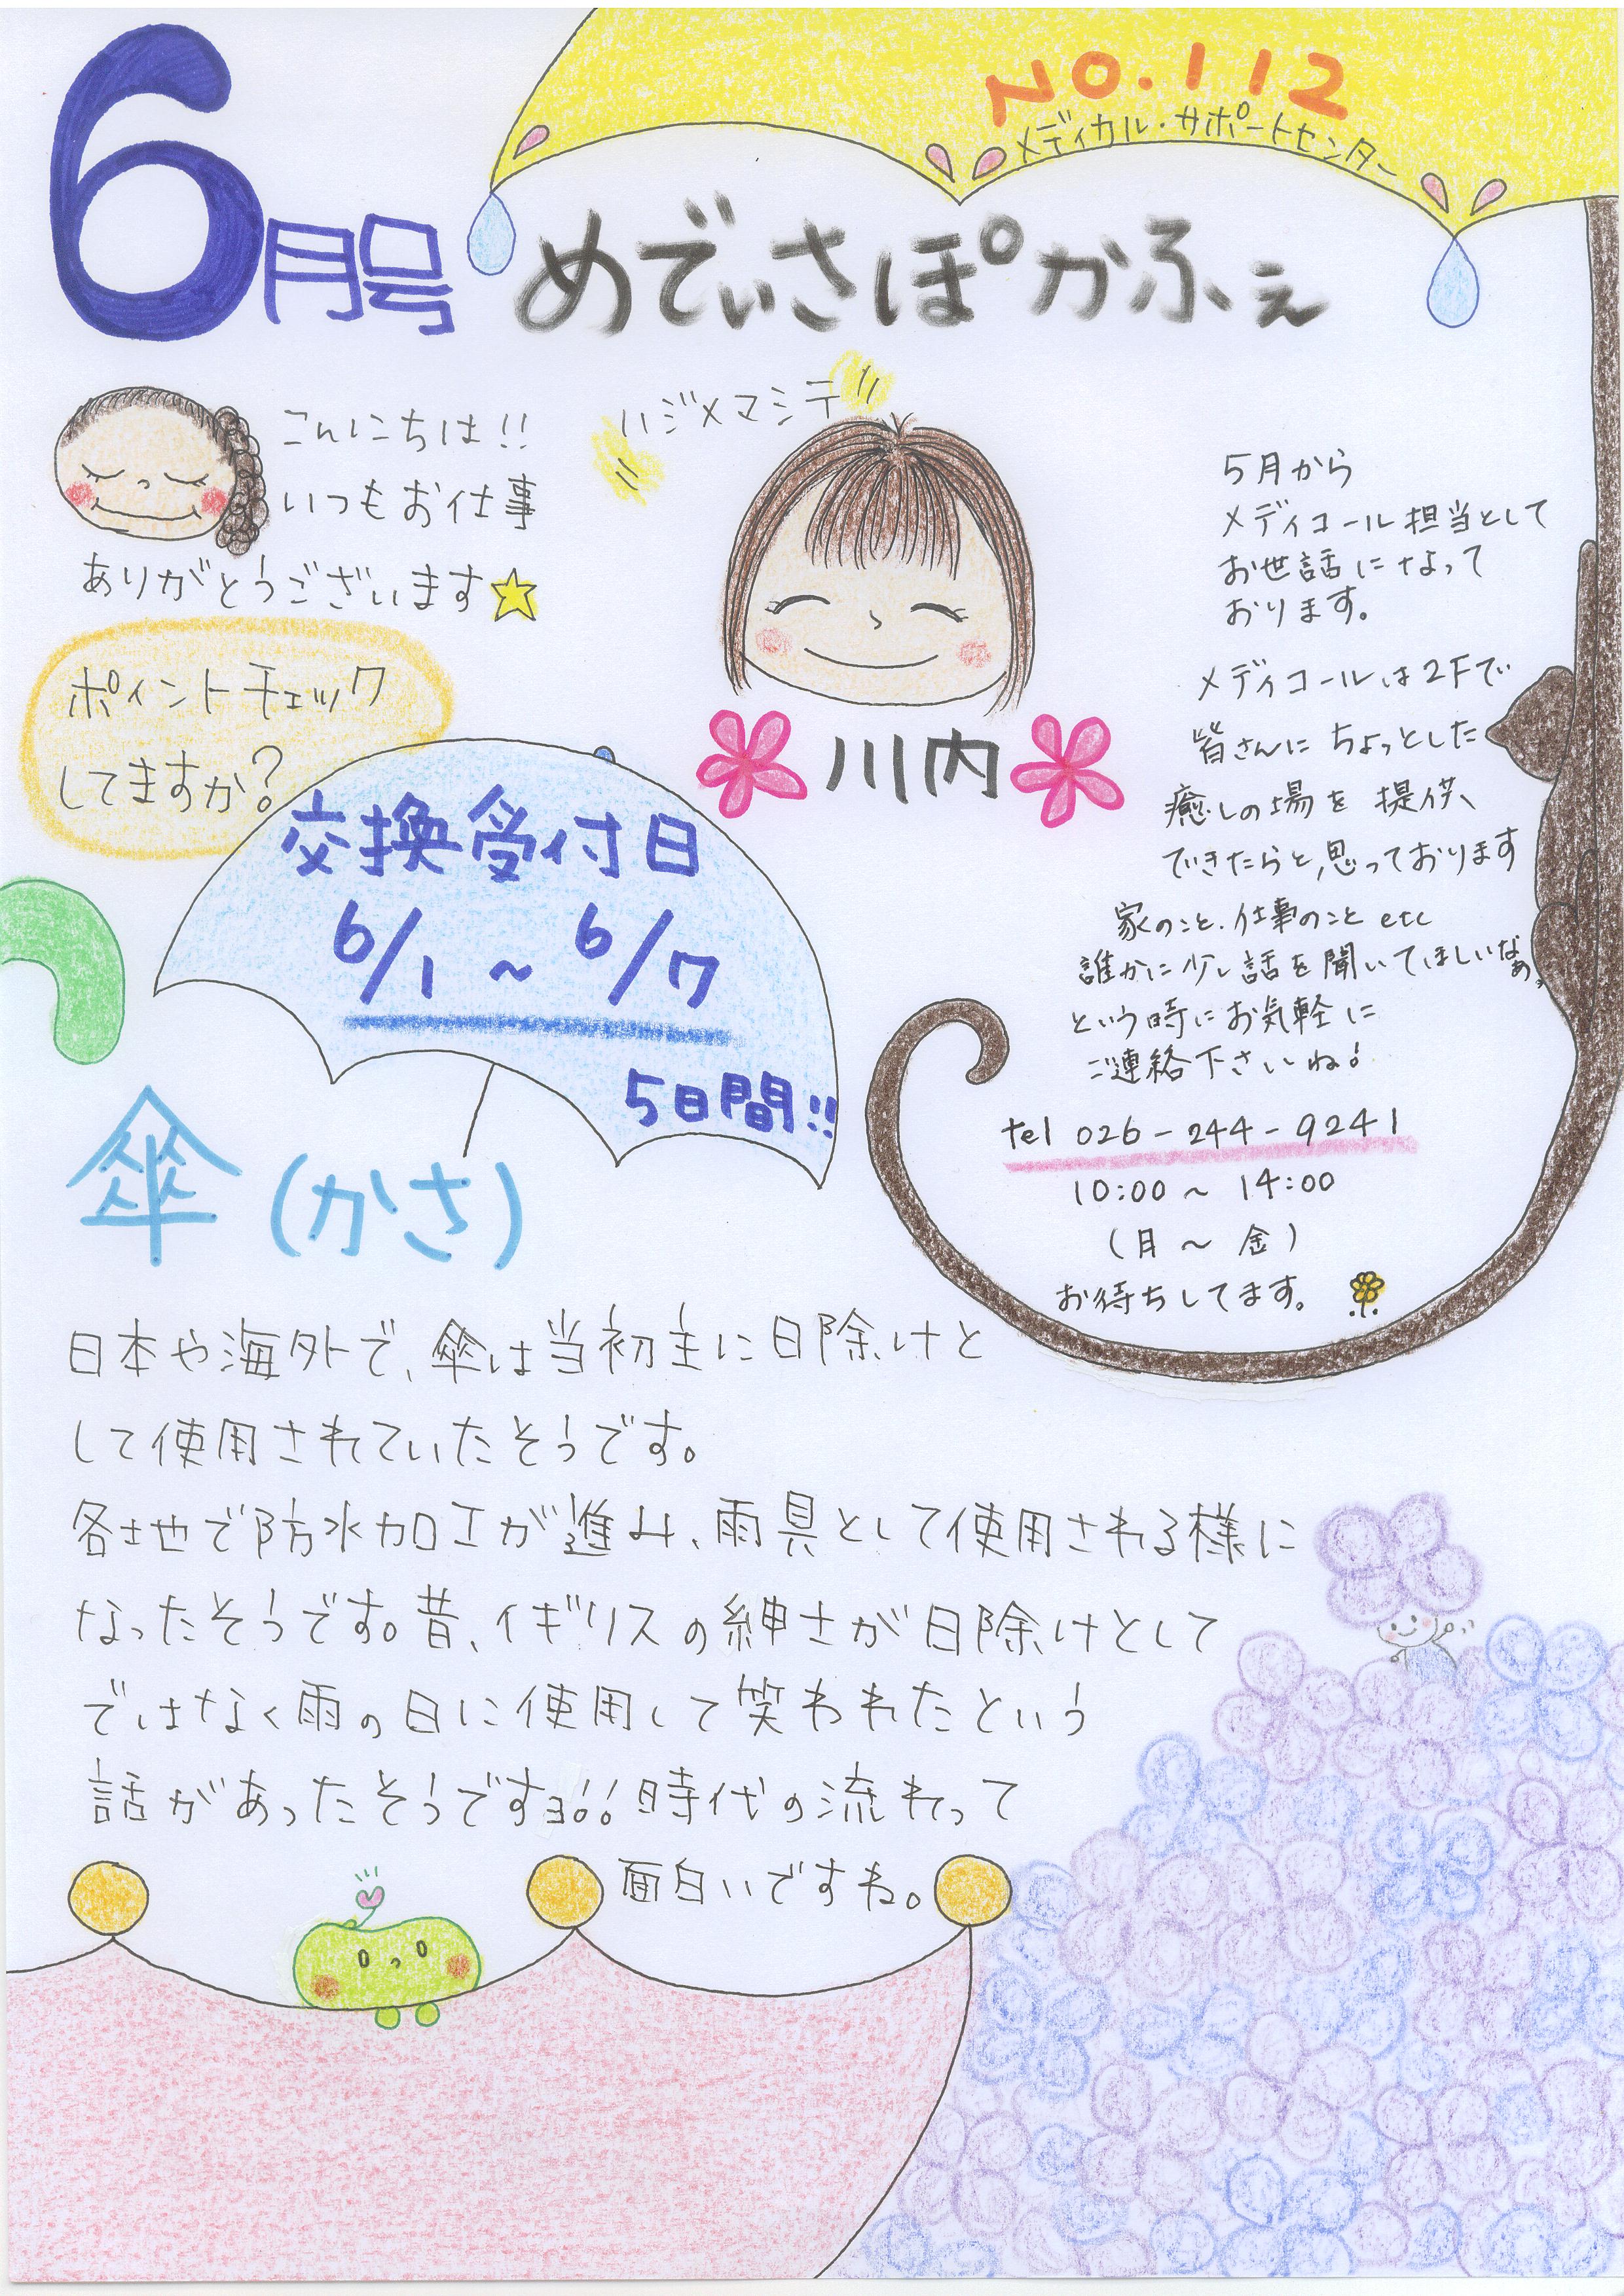 6月号
NO.112
メディカル・サポートセンター
めでぃさぽかふぇ
こんにちは!!
いつもお仕事
ありがとうございます☆
ハジメマシテ
川内
ポイントチェック
してますか?
交換受付日
6/1 ~ 6/7
5日間!!
5月から
メディコール担当として
お世話になって
おります。
メディコールは2Fで
皆さんにちょっとした
癒しの場を提供、
できたらと思っております
家のこと.仕事のこと etc
誰かに少し話を聞いてほしいなぁ。
という時にお気軽に
ご連絡下さいね!
tel 026-244-9241
10:00 ~ 14:00
(月 ~ 金)
お待ちしてます。
傘(かさ)
日本や海外で、傘は当初主に日除けと
して使用されていたそうです。
各地で防水加工が進み、雨具として使用される様に
なったそうです。昔、イギリスの紳士が日除けとして
ではなく雨の日に使用して笑われたという
話があったそうですョ!!時代の流れって
面白いですね。